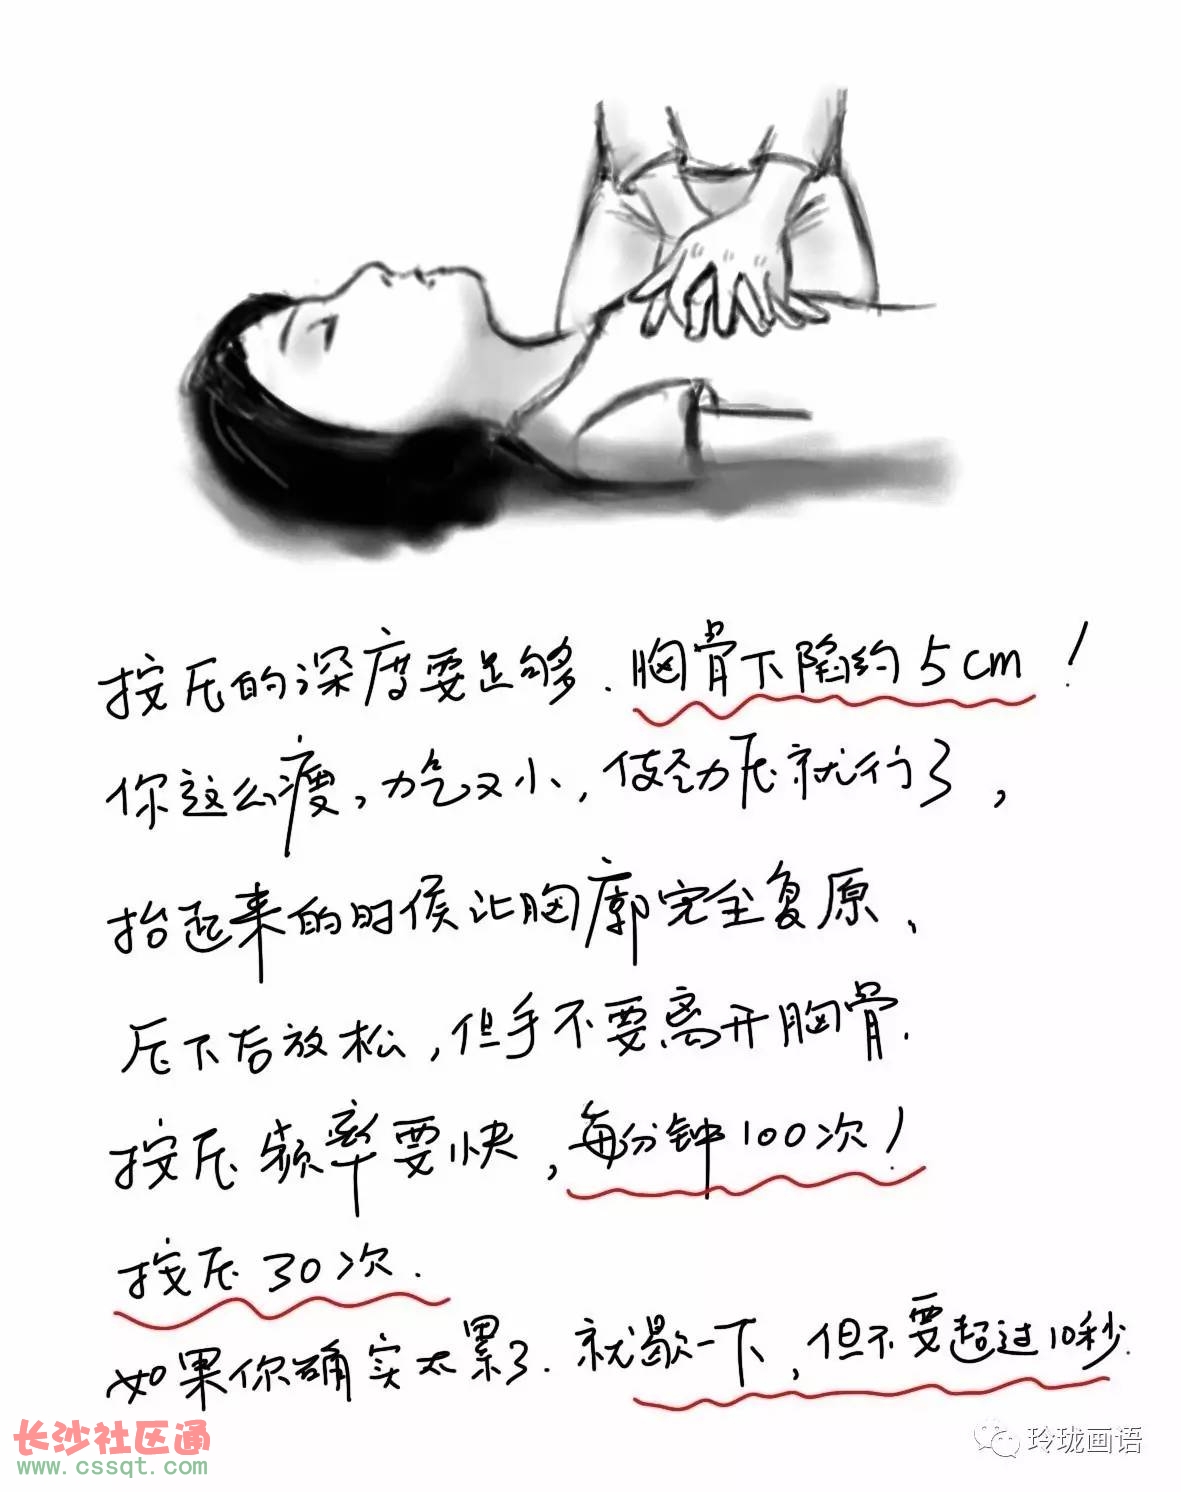 按压的深度要足够.胸骨下陷约5cm!
你这么瘦,力气又小,使劲压就行了,
抬起来的时侯让胸廓完全复原、
压下后放松,但手不要离开胸骨.
按压频率要快,每分钟100次!
按压30次.
如果你确实太累了.就歇一下,但不要超过10秒.
长沙社区通
www.cssqt.com
玲珑画语